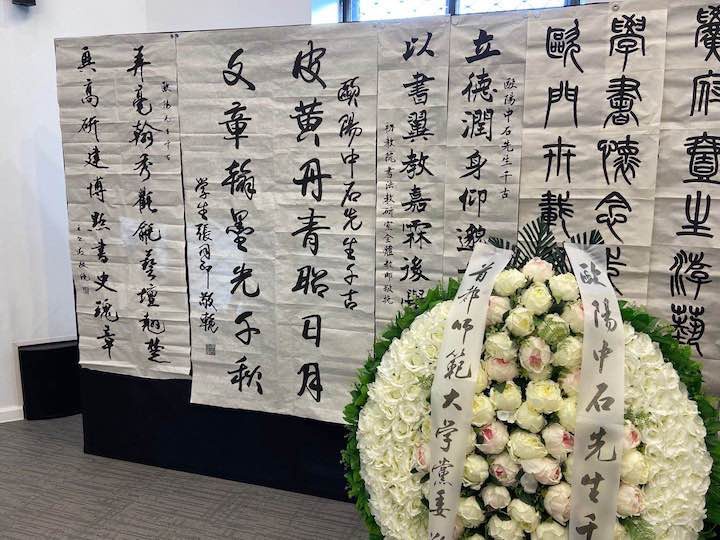 府
生游藝
學書懷念
歐門卅載
歐陽中石先生千古
立德潤身仰
以書翼教嘉霖後學
初教院書法教研室全體教師敬挽
歐陽中石先生千古
皮黃丹青昭日月
文章翰墨光千秋
學生張同印敬輓
弄毫翰秀觀藝壇翹楚
興高研建博點書史瑰章
歐陽中石先生千
首都师範大学黨委